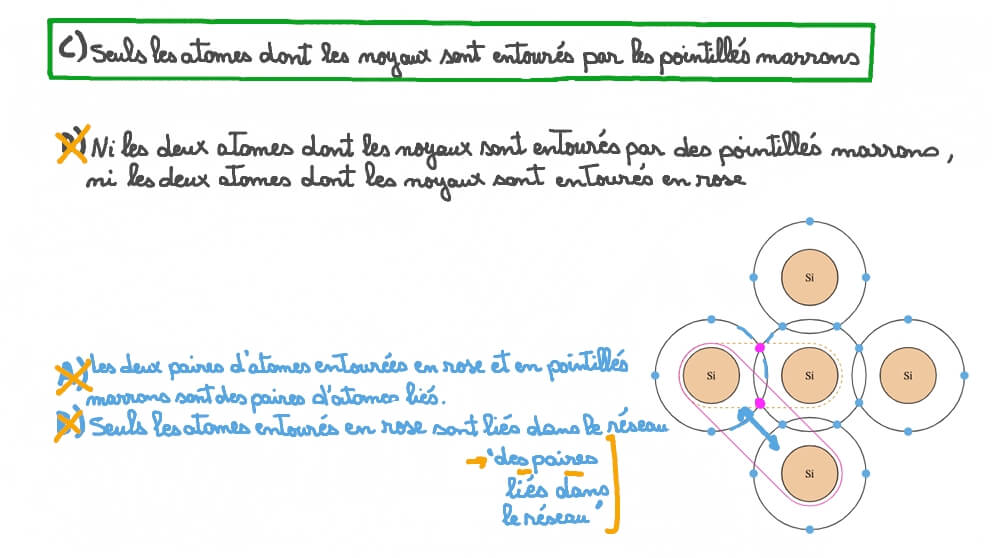 C) Seuls les atomes dont les noyaux sont entourés par les pointillés marrons
D) Ni les deux atomes dont les noyaux sont entourés par des pointillés marrons,
ni les deux atomes dont les noyaux sont entourés en rose
Si
A) Les deux paires d'atomes entourées en rose et en pointillés
marrons sont des paires d'atomes liés.
Si Si Si
B) Seuls les atomes entourés en rose sont liés dans le réseau
→ "des paires
liés dans
le réseau"
Si